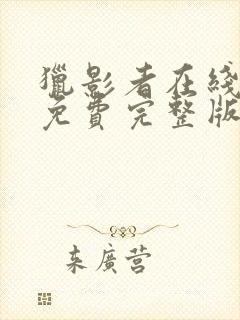 獵影者在綫
免費完整版
来廣营